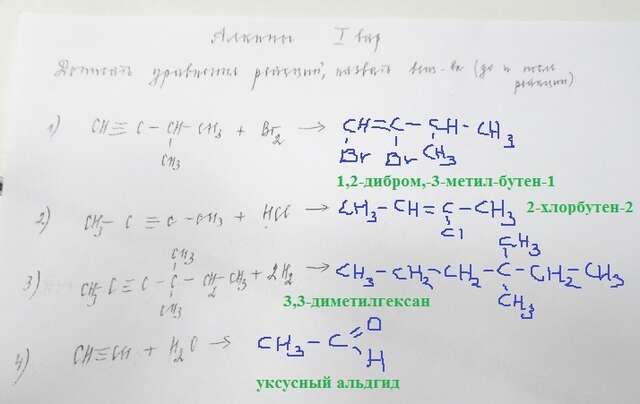 Алкины I вар
Дописать уравнения реакций, назвать вещ-ва (до и после
реакции)
1) CH≡C-CH-CH3 + Br2 → CH=C-CH-CH3
CH3 Br Br CH3
1,2-дибром,-3-метил-бутен-1
2) CH3-C≡C-CH3 + HCl → CH3-CH=C-CH3 2-хлорбутен-2
Cl
CH3 CH3
3) CH3C≡C-C-CH2CH3 + 2H2 → CH3-CH2-CH2-C-CH2-CH3
CH3 CH3
3,3-диметилгексан
4) CH≡CH + H2O → CH3-C=O
H
уксусный альдгид